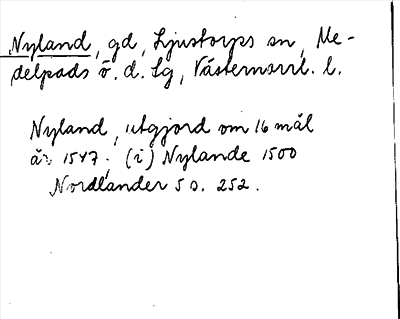 Nyland, gd, Ljustorps sn, Me-
delpads ö. d. lg, Västernorrl. l.
Nyland, utgjord om 16 mål
år 1547; (i) Nylande 1500
Nordlander 5 o. 252.